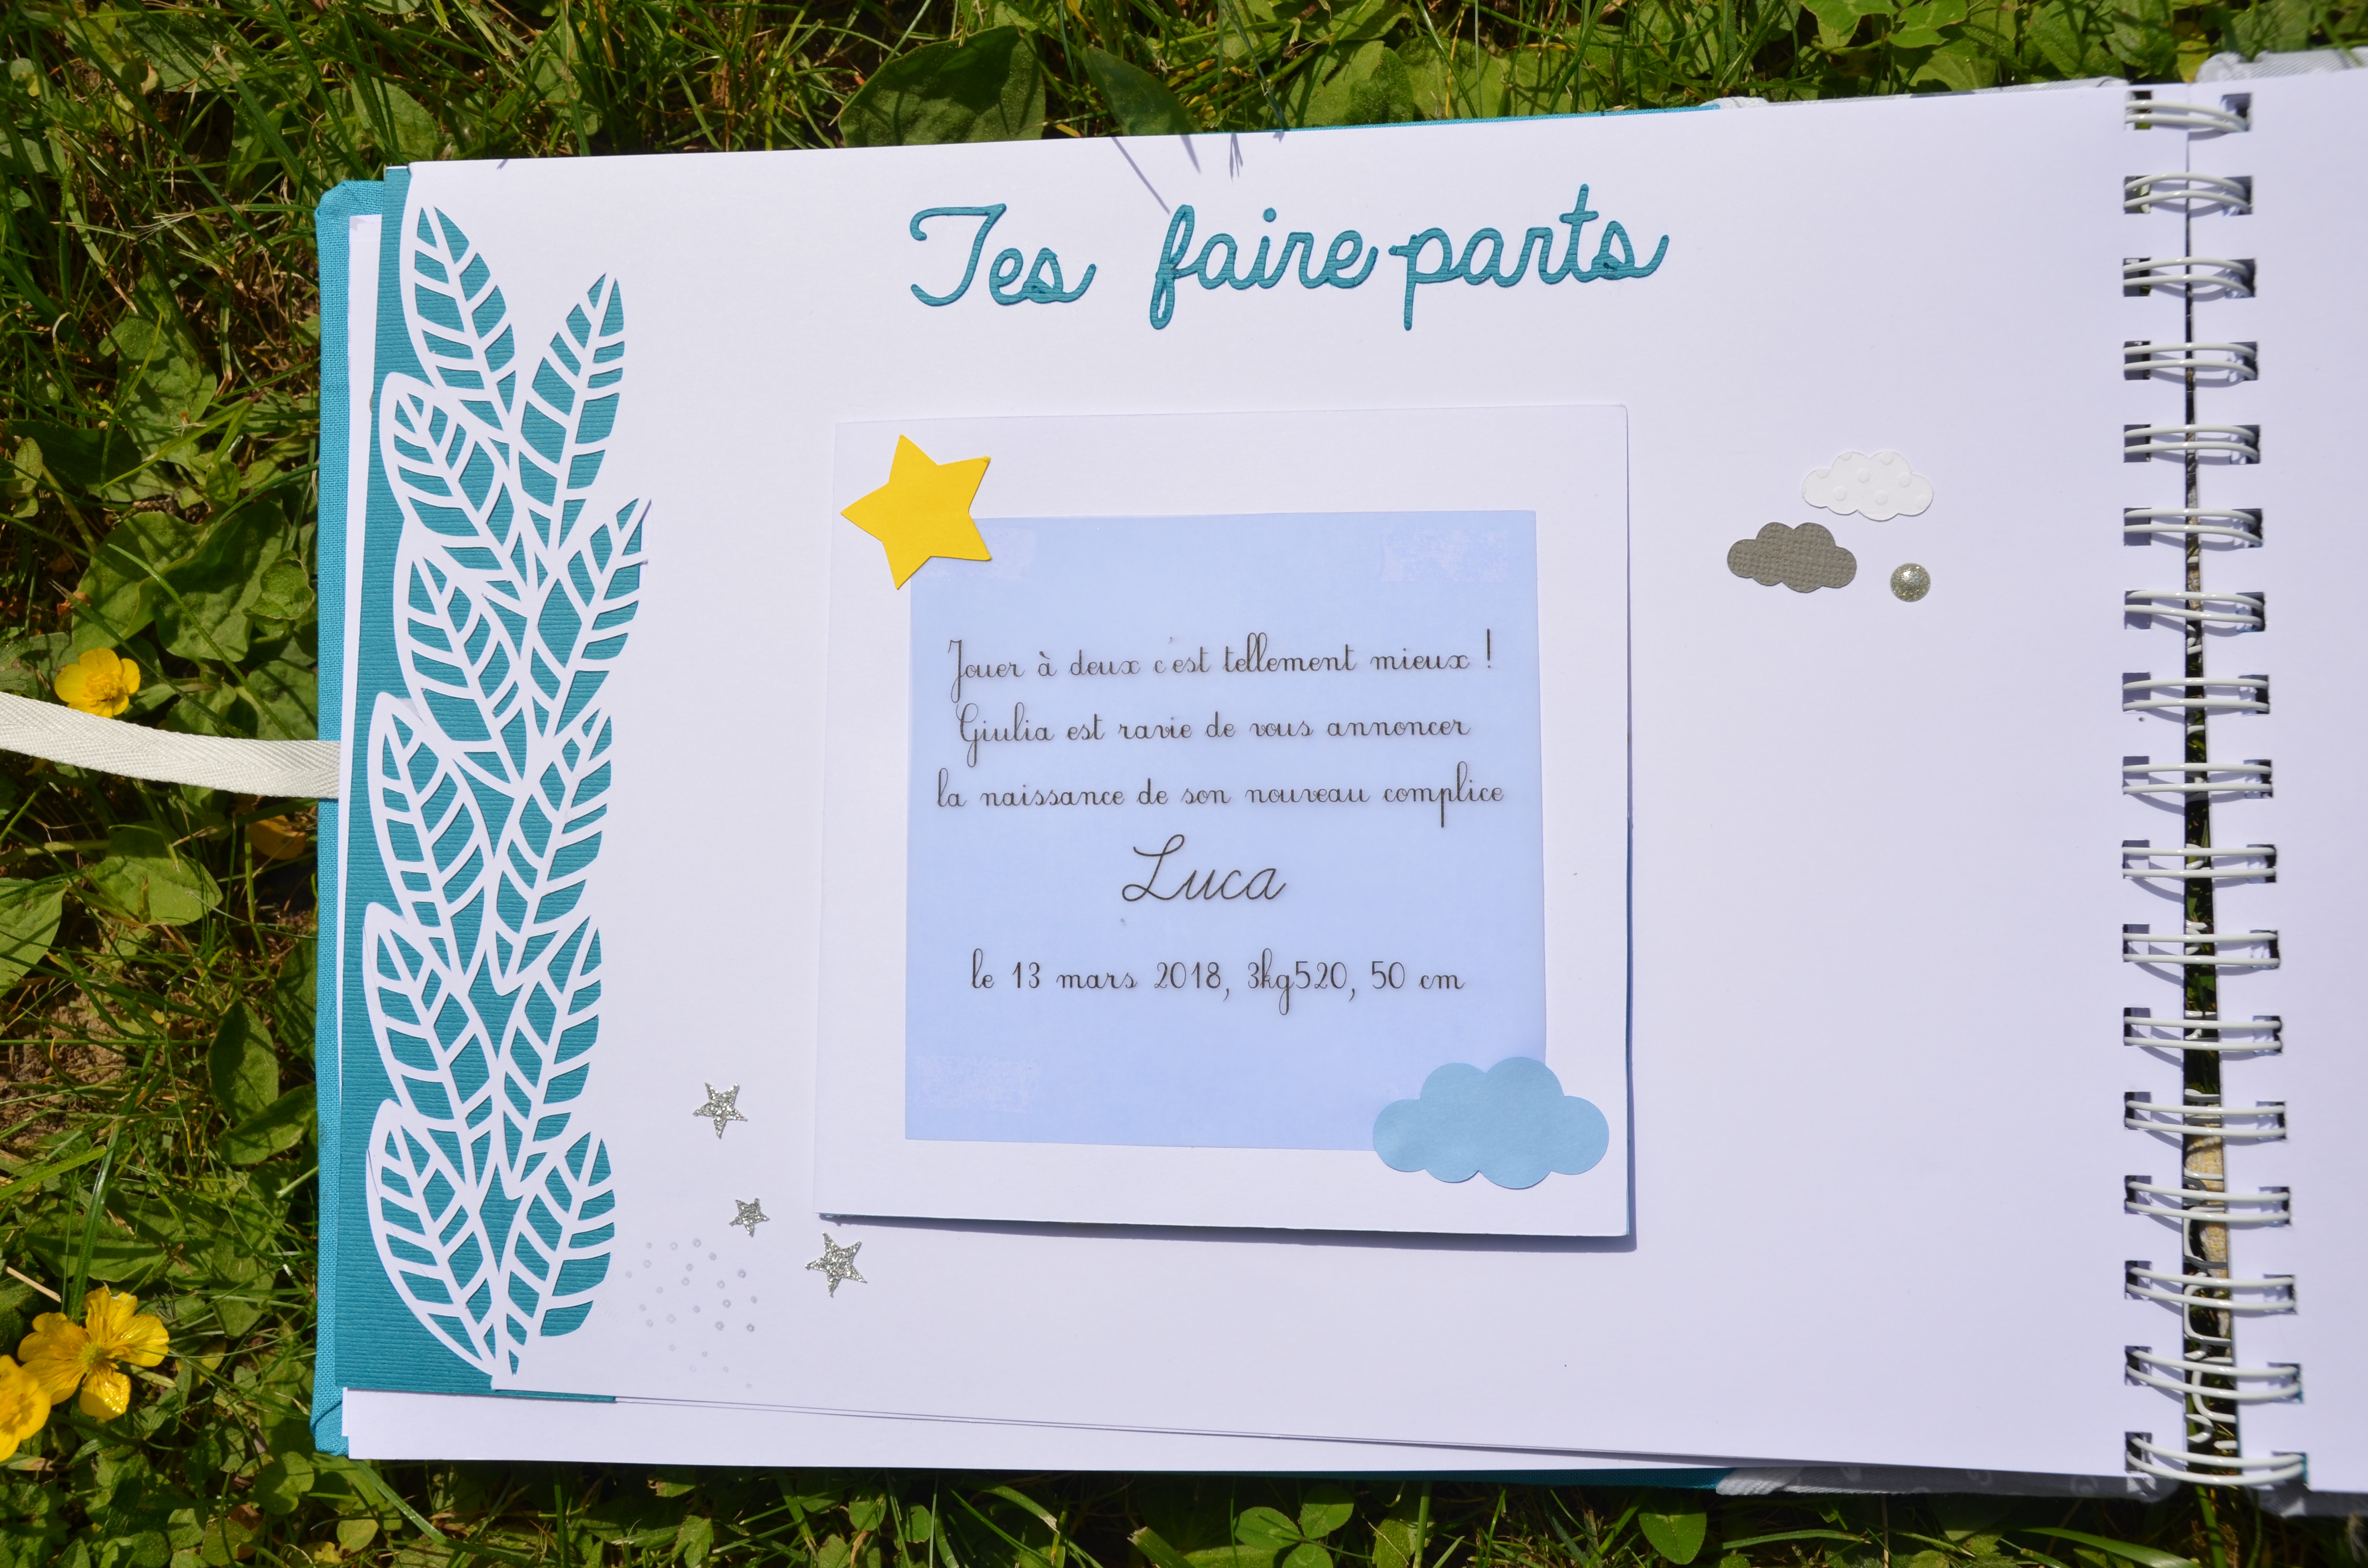 Tes faire-parts
Jouer à deux c'est tellement mieux !
Giulia est ravie de vous annoncer
la naissance de son nouveau complice
Luca
le 13 mars 2018, 3kg520, 50 cm